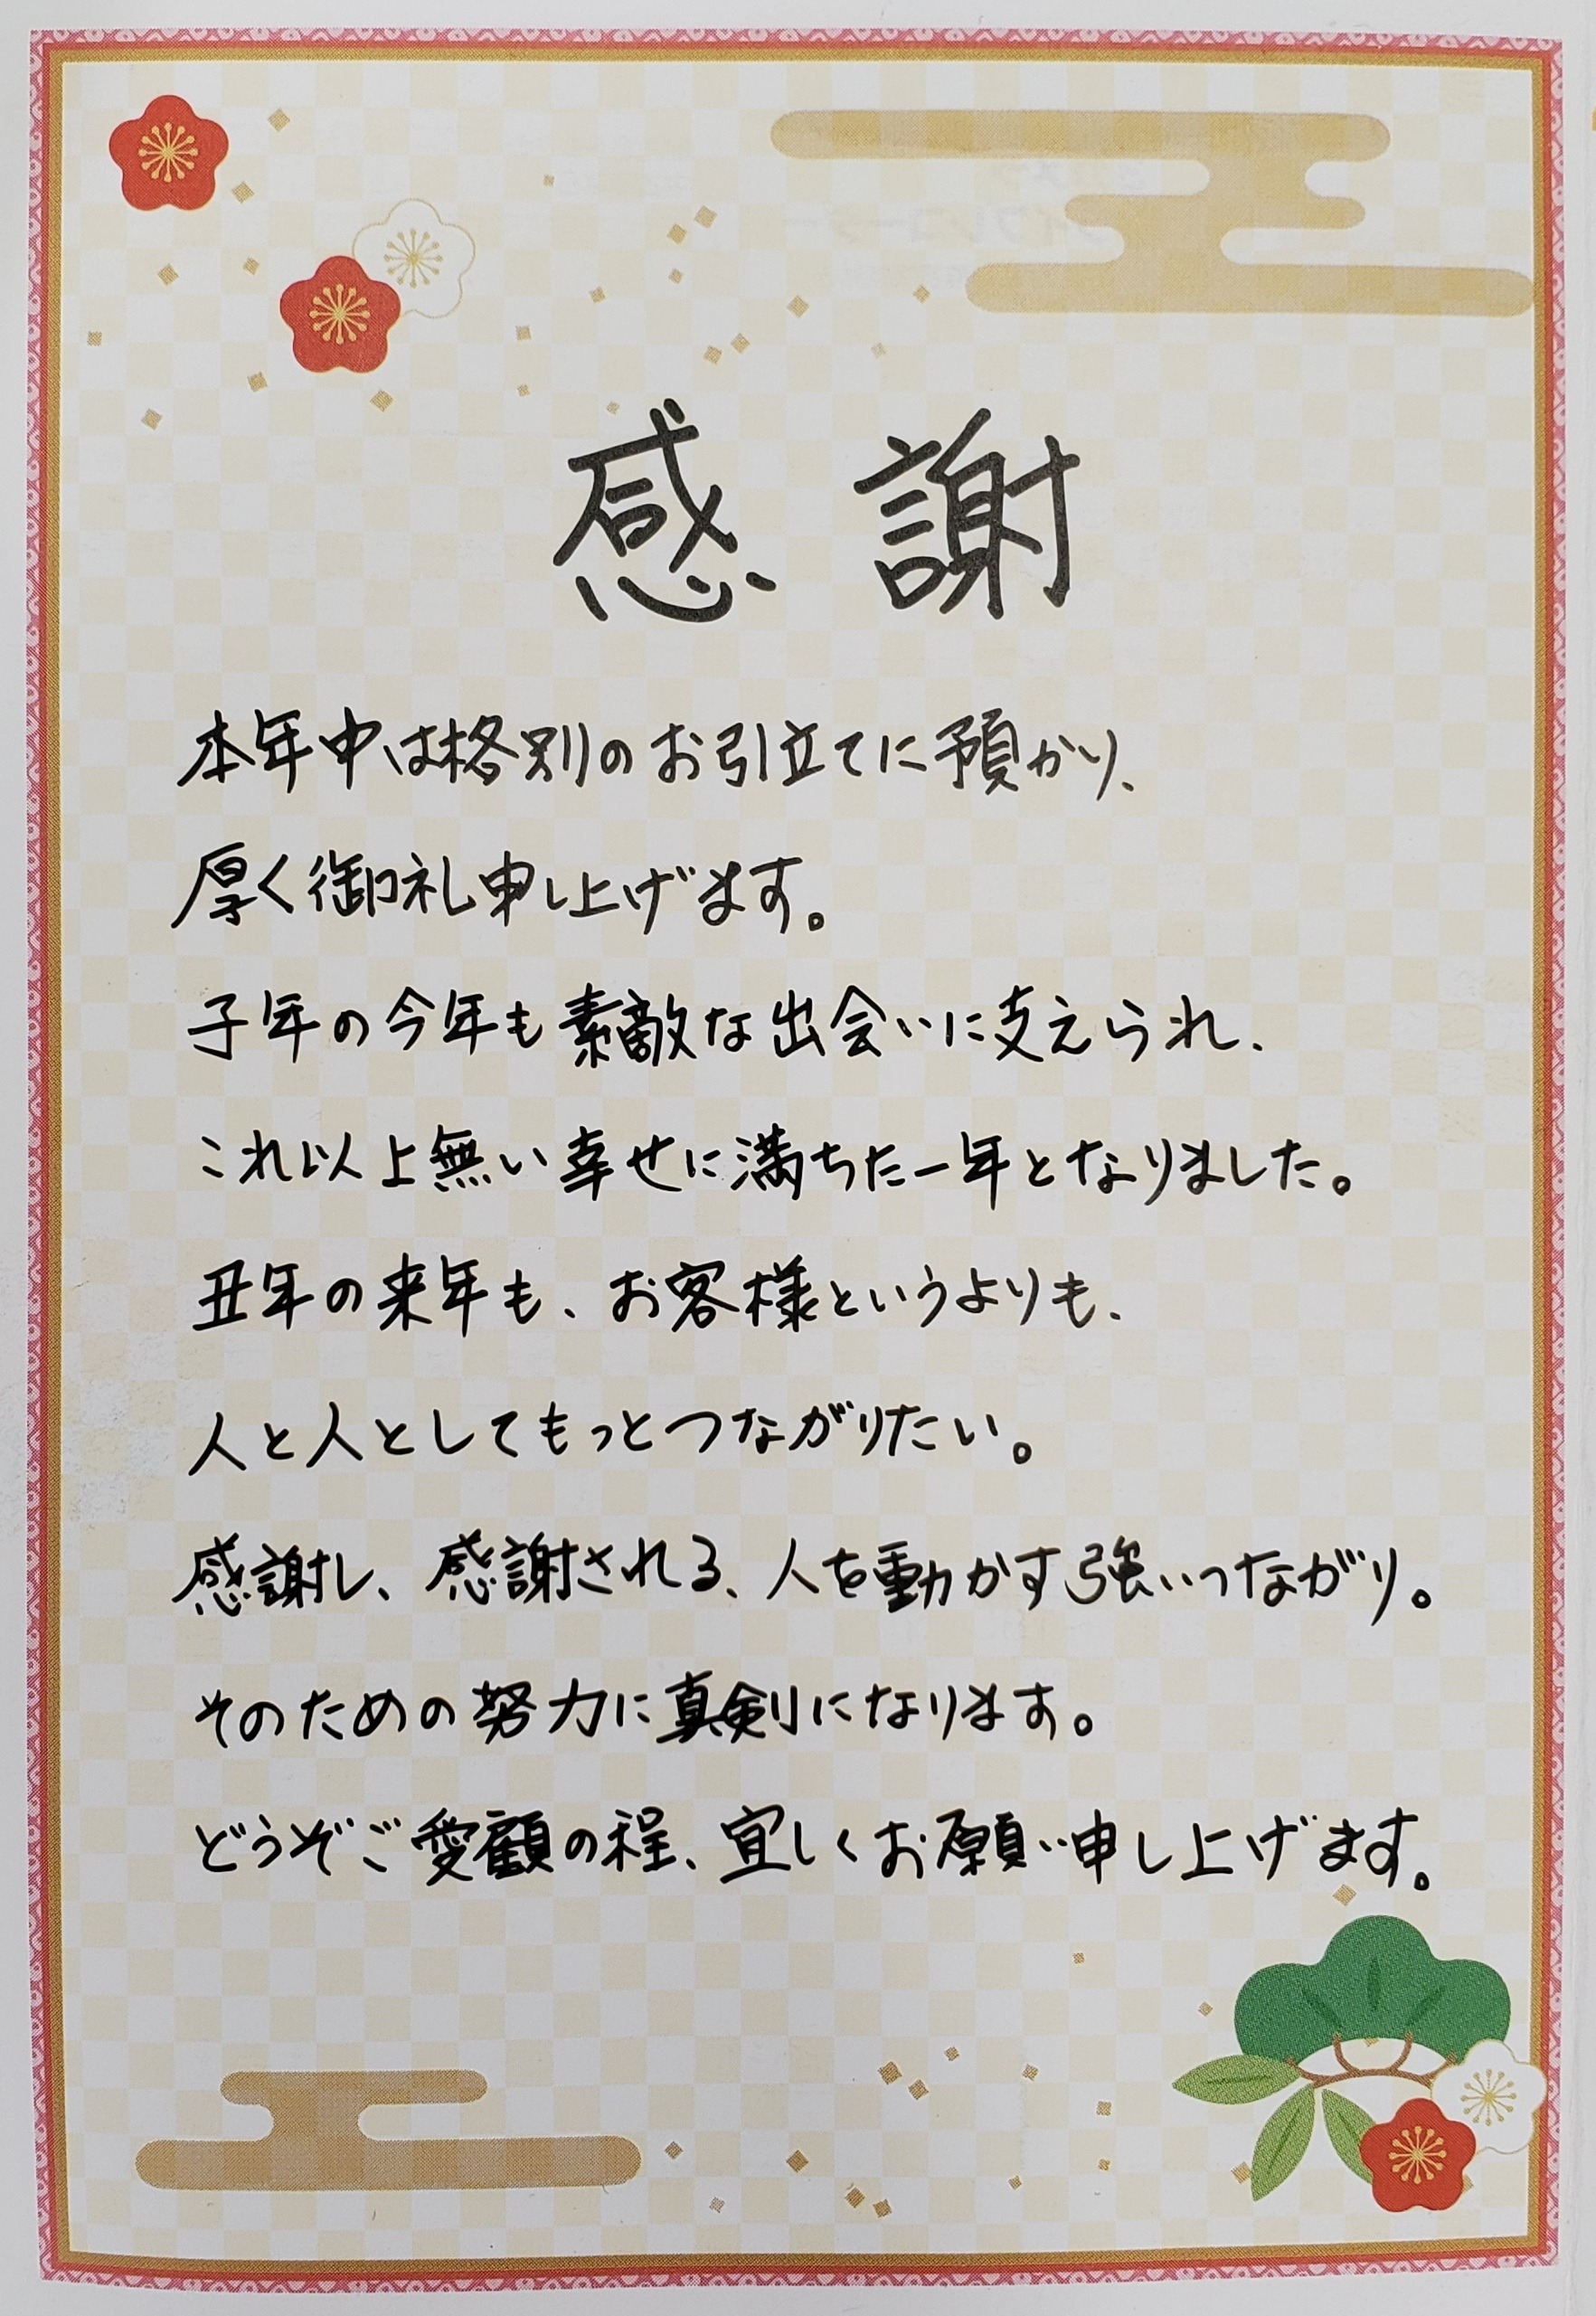 感謝
本年中は格別のお引立てに預かり、
厚く御礼申し上げます。
子年の今年も素敵な出会いに支えられ、
これ以上無い幸せに満ちた一年となりました。
丑年の来年も、お客様というよりも、
人と人としてもっとつながりたい。
感謝し、感謝される、人を動かす強いつながり。
そのための努力に真剣になります。
どうぞご愛顧の程、宜しくお願い申し上げます。